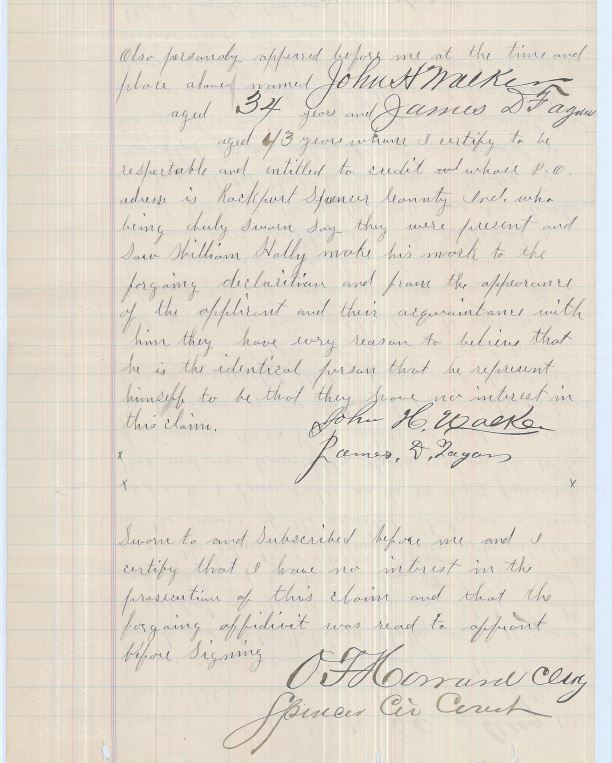 Also persandy appeared before me at the time and
place above named John H Walker
aged 34 years and James D Fagan
aged 43 years whom I certify to be
respertable and entitled to credit and whose P.O.
adresse is Rockport Spencer County Ind. who
being duly sworn say they were present and
saw William Holly make his mork to the
forgaing declarition and from the appearance
of the applicant and their acquaintance with
him they have evry reason to believe that
he is the identical person that he represent
himself to be that they have no interest in
this claim.
John H. Walker
James. D. Fagan
x
x x
Sworn to and Subscribed before me and I
certify that I have no interest in the
prosecution of this claim and that the
forgaing affidivit was read to
before Signing
O F Howard
Spencer Cir Court